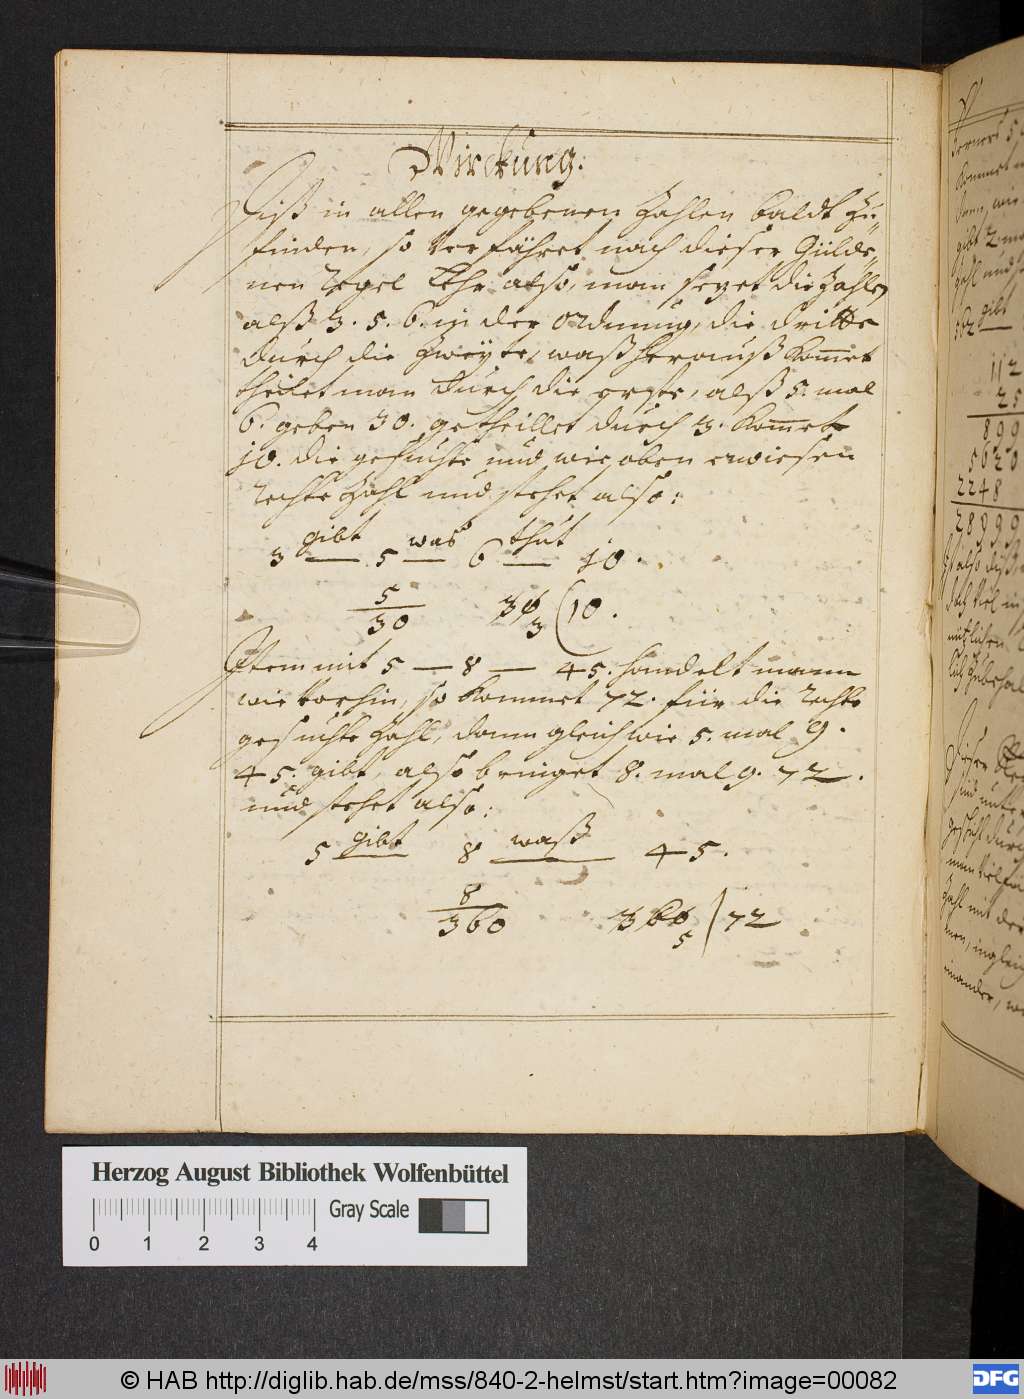 Wirckung:
Diß in allen gegebenen Zahlen baldt zu
finden, so verfähret nach dieser Gülde-
nen Regel Lehr also, man sezet die Zahlen
alß 3. 5. 6. in der ordnung, die dritte
durch die Zweÿte, waß herauß kommet
theilet man durch die erste, alß 5. mal
6. geben 30. getheillet durch 3. kommet
10. die gesuchte und wie oben erwiesen
rechte Zahl und stehet also:
3 gibt 5 was 6 thut 10.
5
30 30 (10.
3
Item mit 5 — 8 — 45. handelt mann
wie vorhin, so kommet 72. für die rechte
gesuchte Zahl, dann gleich wie 5. mal 9.
45. gibt, also bringet 8. mal 9. 72.
und stehet also:
5 gibt 8 waß 45.
8
360 360 ) 72
5
112
25
899
5620
2248
28099
Herzog August Bibliothek Wolfenbüttel
Gray Scale
0 1 2 3 4
© HAB http://diglib.hab.de/mss/840-2-helmst/start.htm?image=00082
DFG